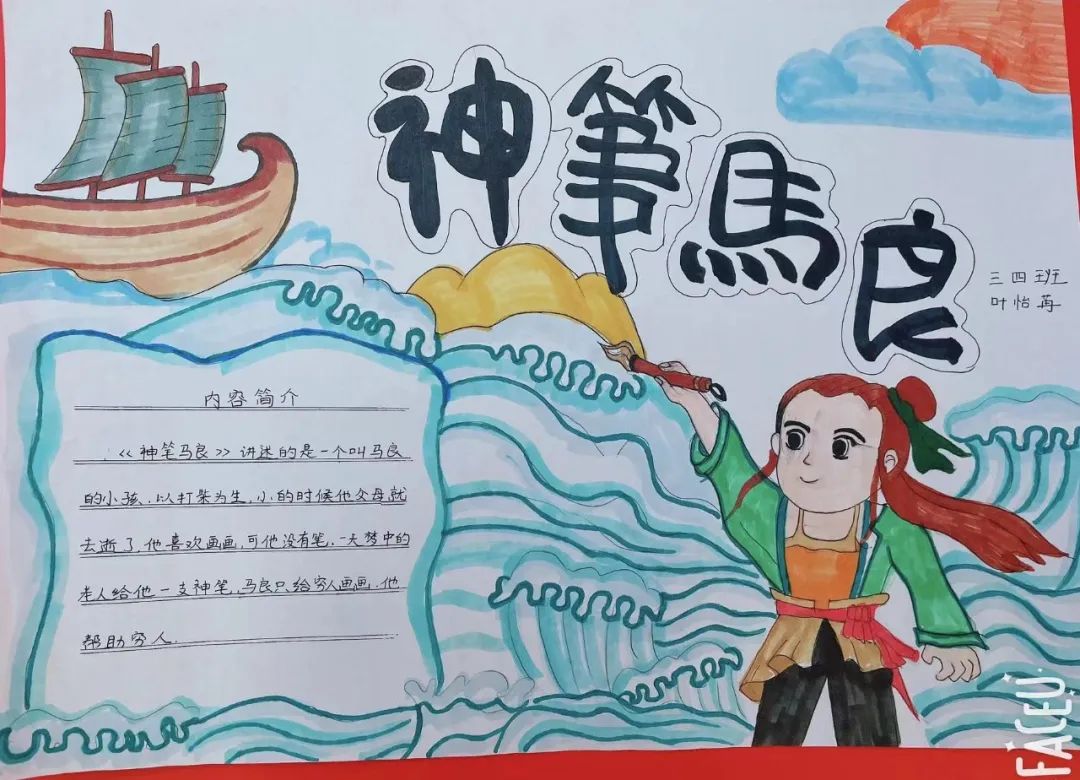 神筆馬良
三四班
叶怡苒
内容简介
《神笔马良》讲述的是一个叫马良
的小孩,以打柴为生,小的时候他父母就
去逝了,他喜欢画画,可他没有笔,一天梦中的
老人给他一支神笔,马良只给穷人画画,他
帮助穷人
FACEU